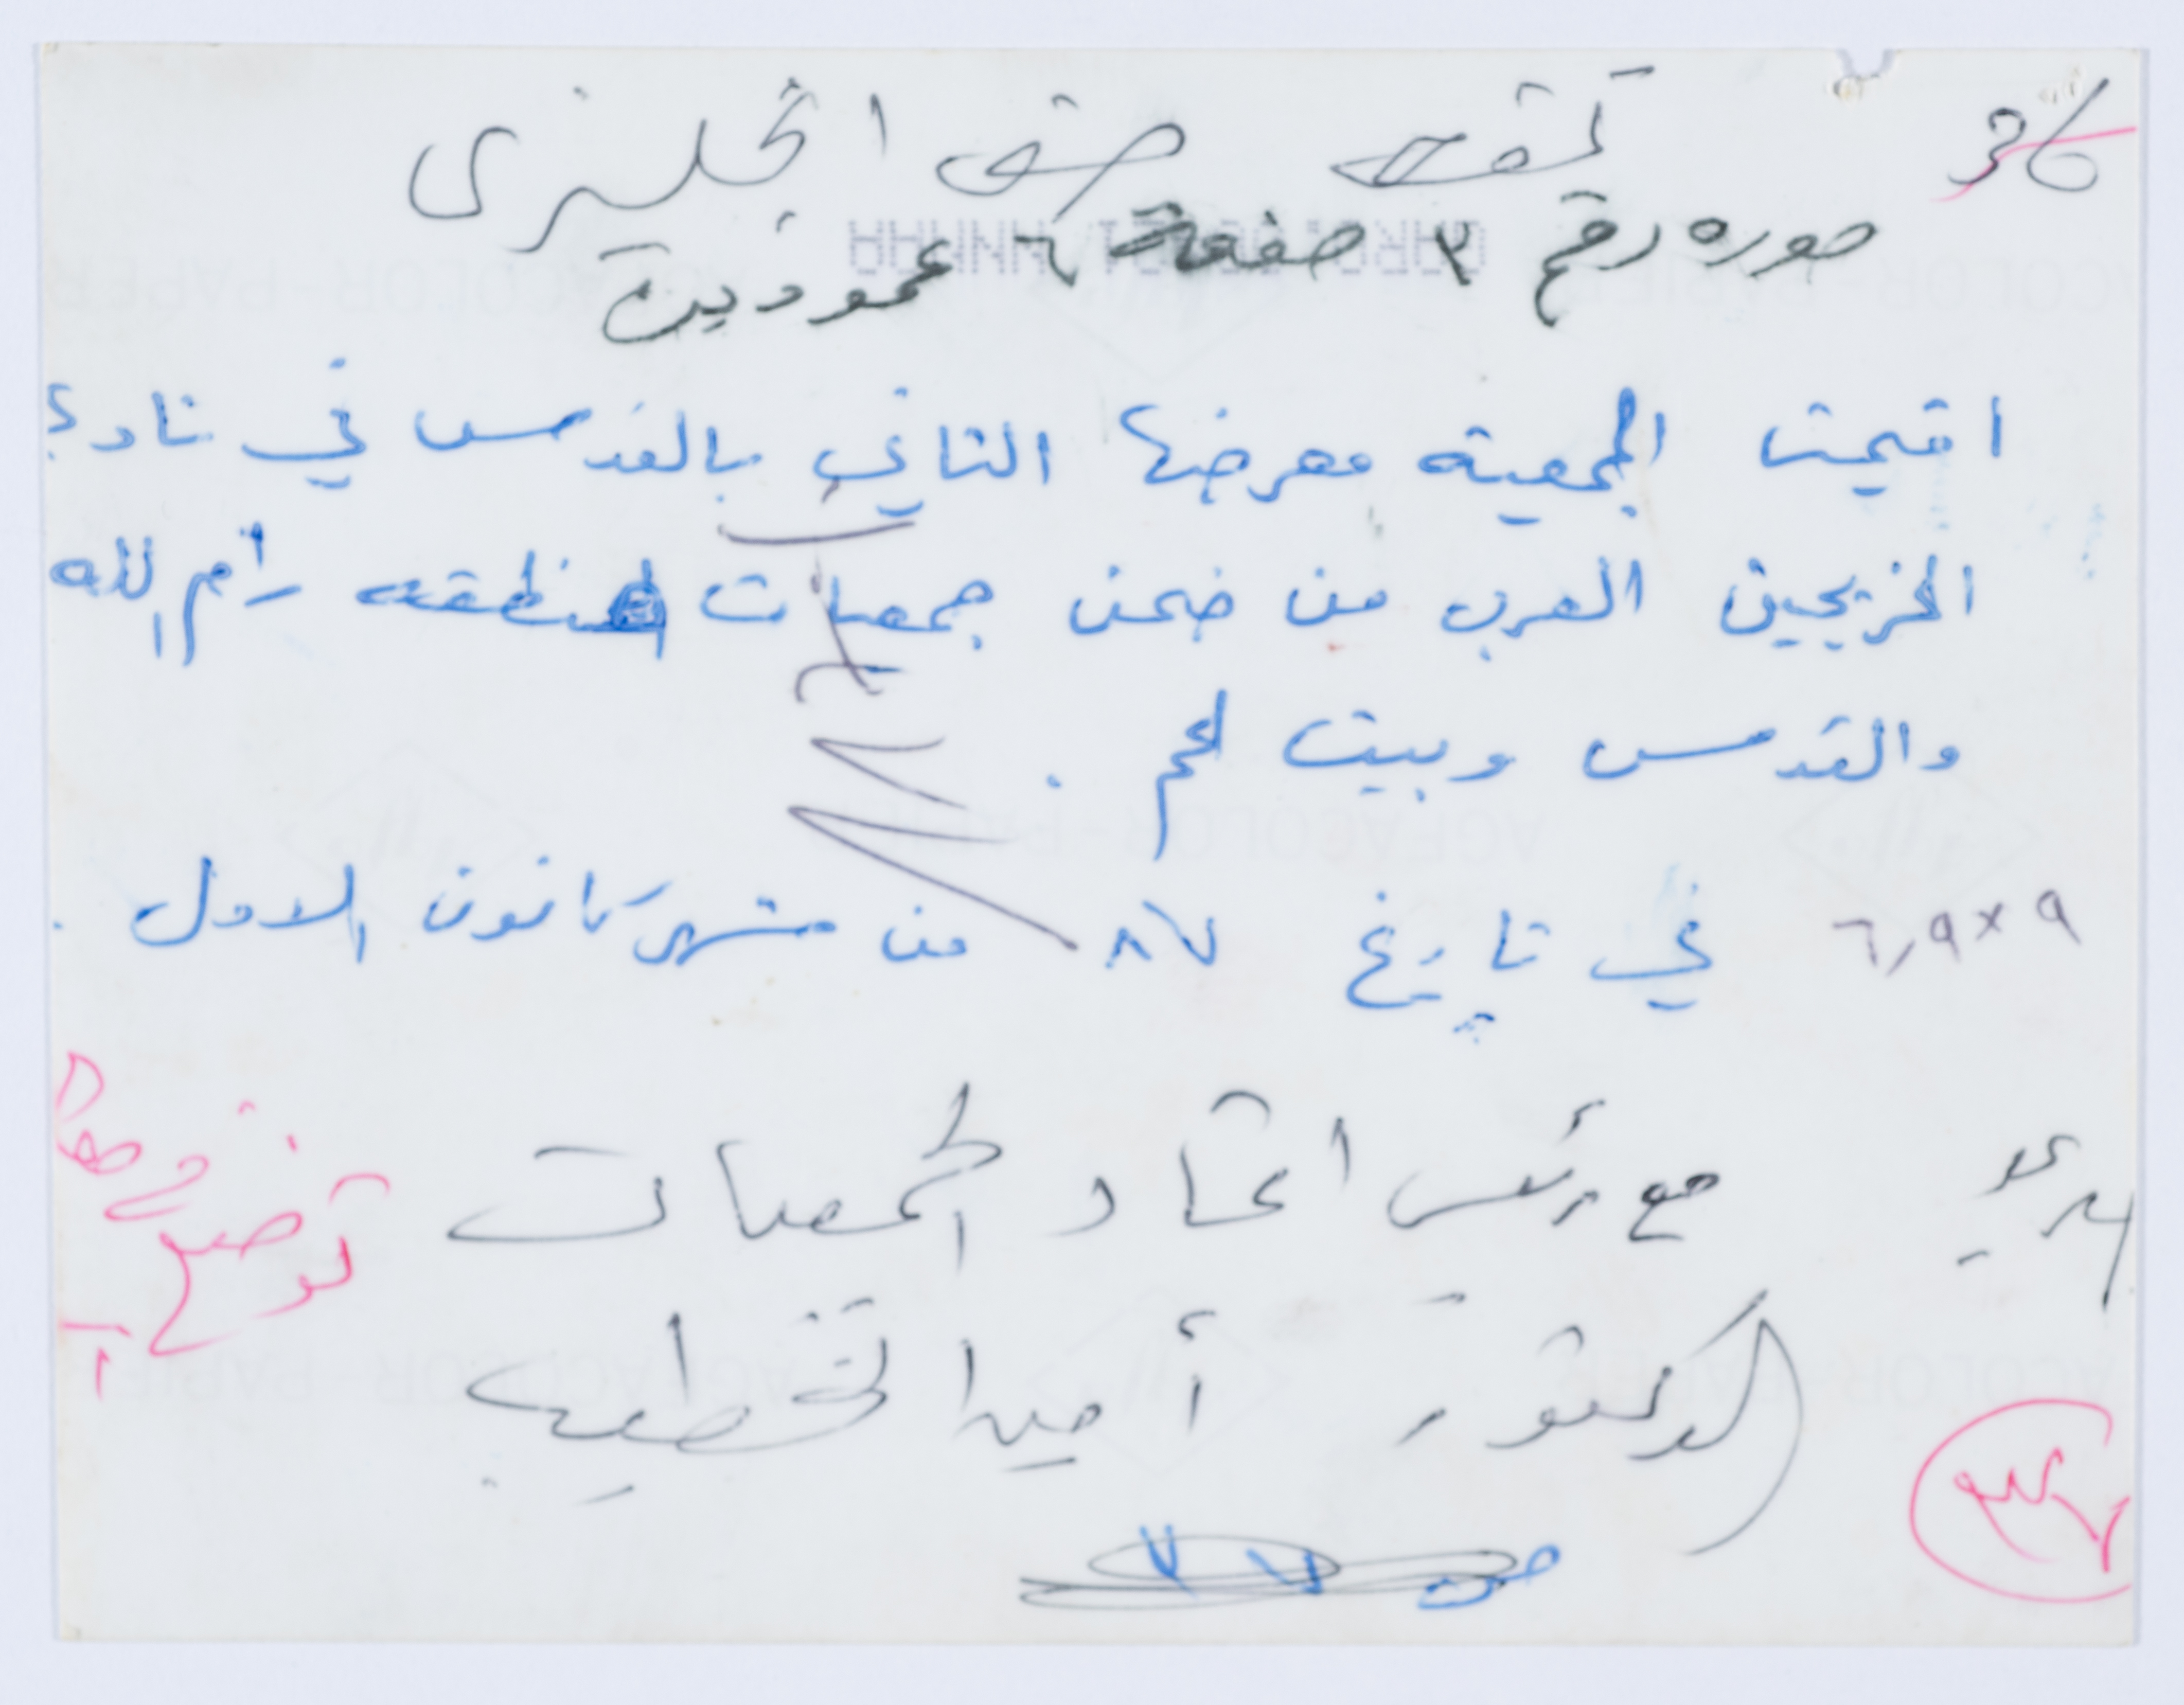 صف انجليزي
صوره رقم ٣ صفحة ٦ عمودين
اقيمت الجمعية معرضها الثاني بالقدس في نادي
الخريجين العرب من ضمن جمعيات منطقه رام الله
والقدس وبيت لحم .
٩ × ٦,٩
في تاريخ ٨٧ من شهر كانون الاول .
مع رئيس اتحاد الجمعيات
الدكتور أمين الخطيب
ص ٧٧